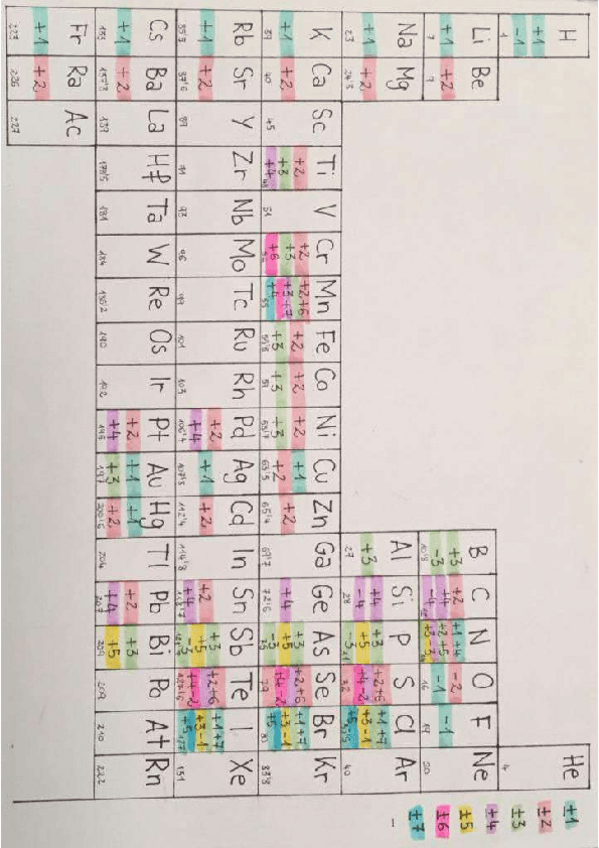 H He
+1
-1
1 4
±1
±2
±3
±4
±5
±6
±7
Li Be B C N O F Ne
+1 +2 +3 +2 +1 +4 -2 -1
-3 +4 +2 +5 -1
-4 +3 -3
7 9 10'8 16 19 20
Na Mg Al Si P S Cl Ar
+1 +2 +3 +4 +3 +2 +6 +1 +7
-4 +5 +4 -2 +3 -1
-3 +5
23 24'3 27 28 31 32 35'5 40
K Ca Sc Ti V Cr Mn Fe Co Ni Cu Zn Ga Ge As Se Br Kr
+1 +2 +2 +2 +2 +6 +2 +2 +2 +1 +2 +4 +3 +2 +6 +1 +7
+3 +3 +3 +7 +3 +3 +3 +2 +5 +4 -2 +3 -1
+4 +6 +4 -3 +5
39 40 45 48 51 52 55 55'8 59 63'5 65'4 69'7 72'6 75 79 83'8
Rb Sr Y Zr Nb Mo Tc Ru Rh Pd Ag Cd In Sn Sb Te I Xe
+1 +2 +2 +1 +2 +2 +3 +2 +6 +1 +7
+4 +4 +5 +4 -2 +3 -1
-3 +5
85'5 87'6 89 91 93 96 99 101 103 106'4 112'4 114'8 127 131
Cs Ba La Hf Ta W Re Os Ir Pt Au Hg Tl Pb Bi Po At Rn
+1 +2 +2 +1 +1 +2 +3
+4 +3 +2 +4 +5
133 137'3 139 178'5 181 184 186'2 190 192 195 197 200'6 204 207 209 209 210 222
Fr Ra Ac
+1 +2
223 226 227